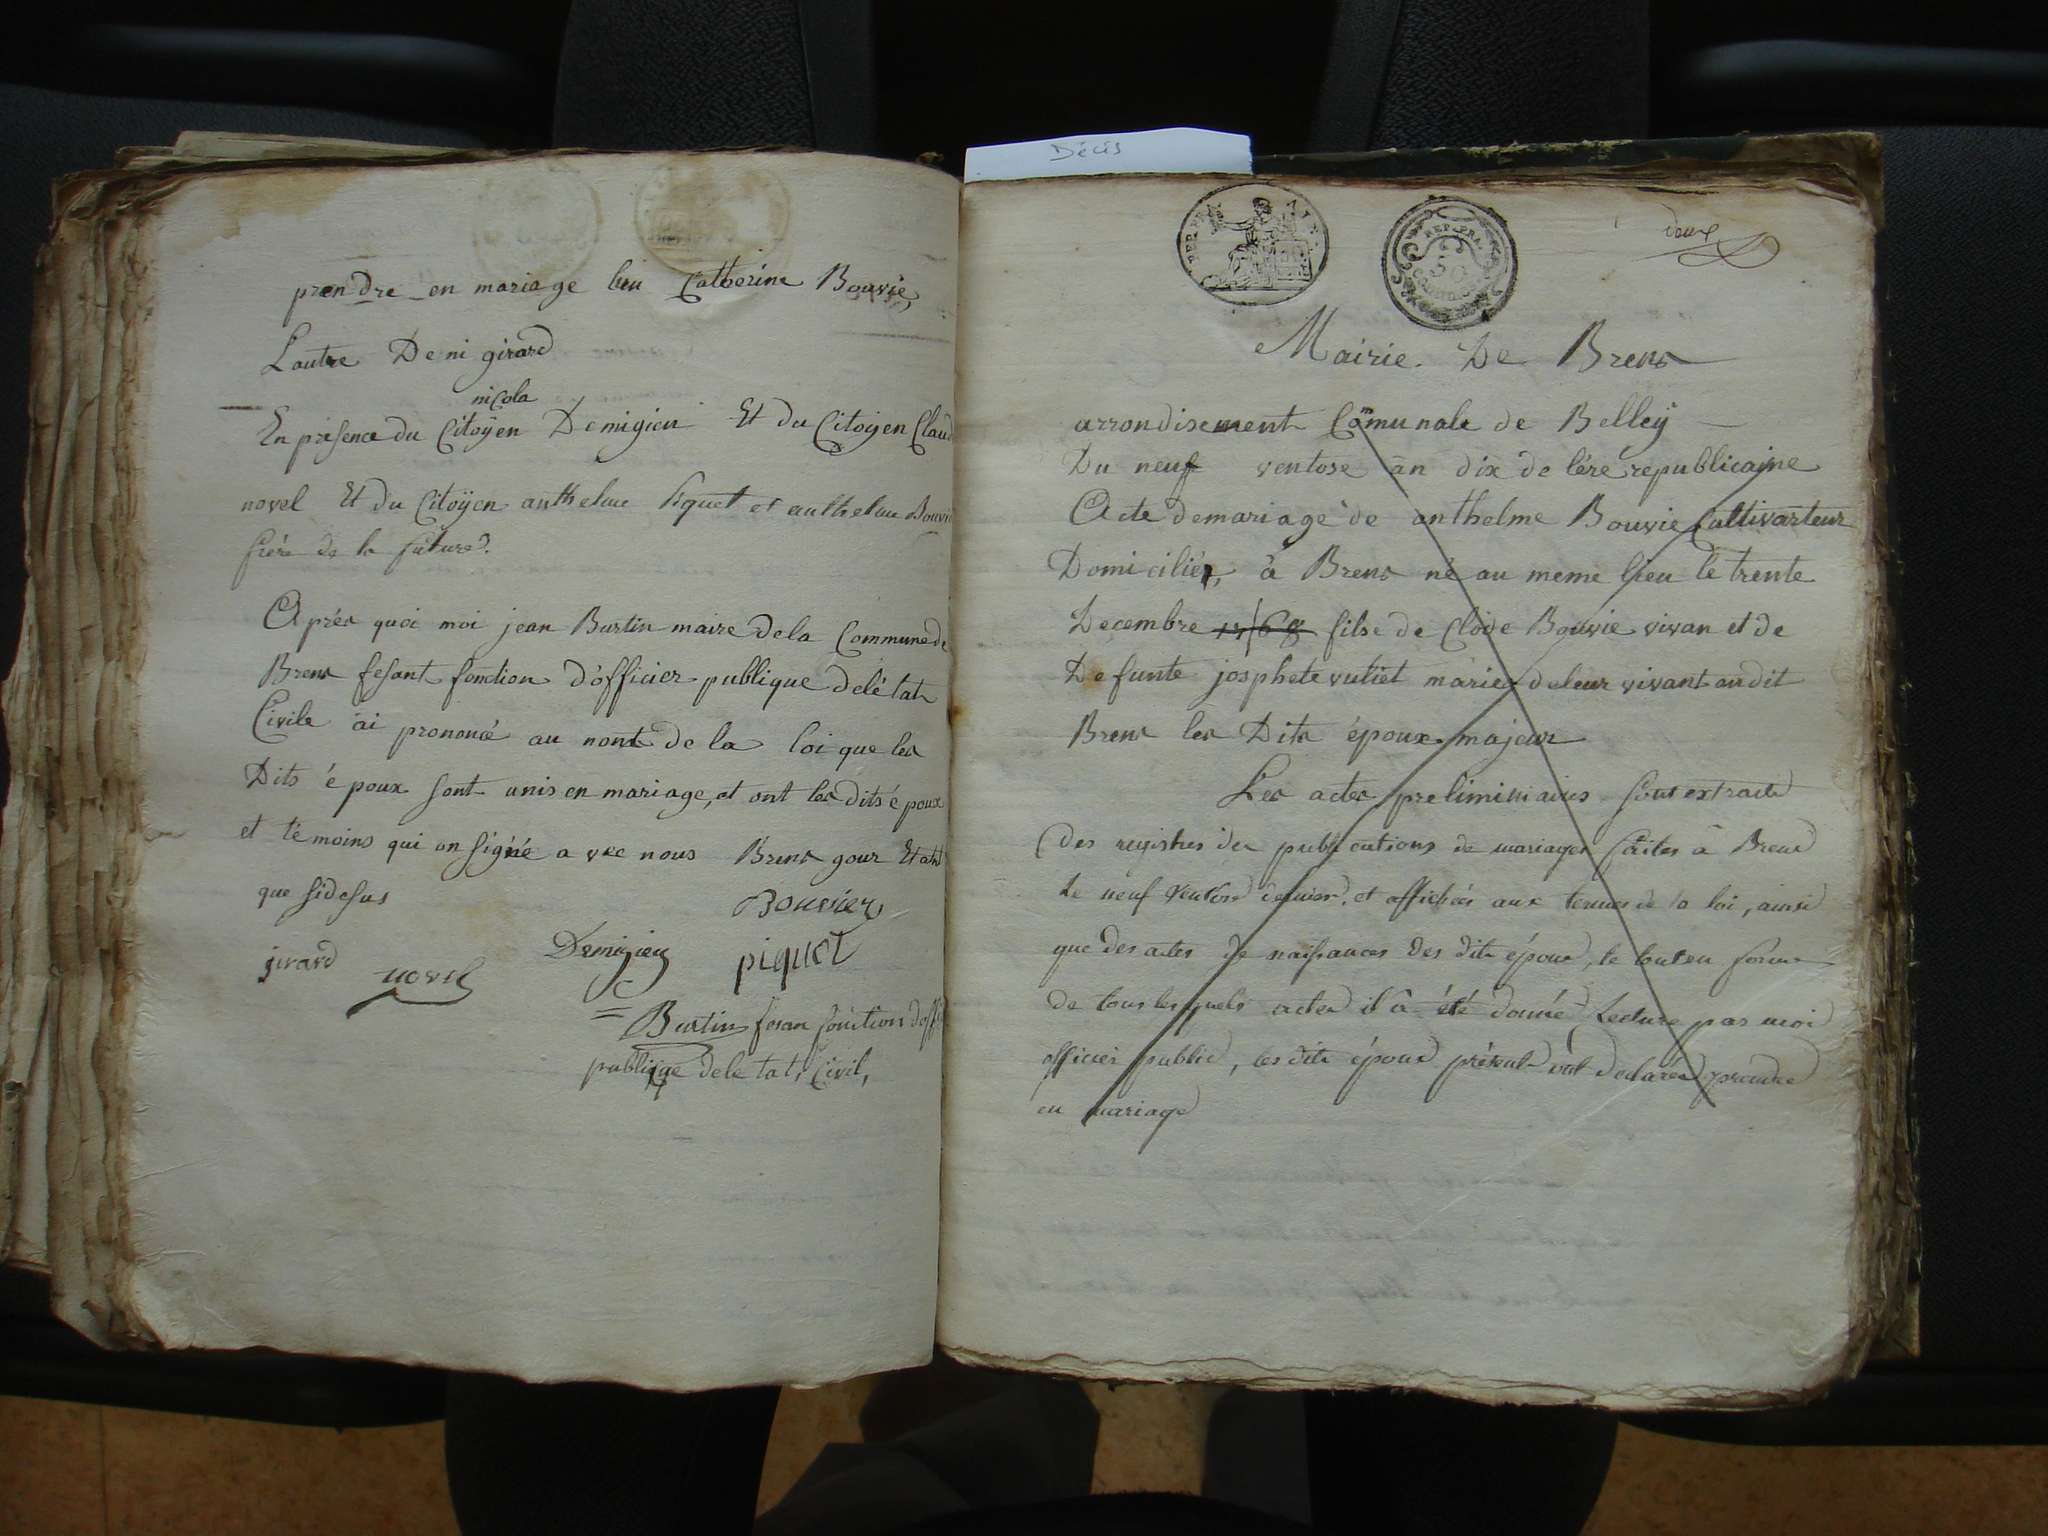 prendre en mariage lun Catherine Bouvie,
Lautre Deni girard
nicola
En présence du Citoÿen Demigieu Et du Citoyen Claud
novel Et du Citoÿen anthelme Piquet et anthelme Bouvie
frére de la future.
Aprés quoi moi jean Burtin maire dela Commune de
Brens fesant fonction d'officier publique delétat
Civile ai prononcé au nont de la loi que les
Dits époux sont unis en mariage, et ont les dits époux
et témoins qui on signé avec nous Brens gour Et ant
que sidesus
Bouvier
girard novel Demigieu piquet
Burtin fesan fonction doffi
publique dele tat, Civil,
Décis
REP. FRA.
50
deux
Mairie. De Brens
arrondisement Comunale de Belleÿ
Du neuf ventose an dix de lére republicaine
Acte demariage de anthelme Bouvie Cultivarteur
Domicilier, à Brens né au meme lieu le trente
Decembre 1768 filse de Clode Bouvie vivan et de
Defunte josphete vuliet mariés deleur vivant audit
Brens les Dits époux majeur
Les actes preliminaires sont extraits
des registres des publications de mariages faites à Brens
le neuf ventose dernier, et affichées aux termes de la loi, ainsi
que des actes de naissances des dits époux, le tout en forme
de tous lesquels actes il à été donné Lecture par moi
officier public, les dits époux présent ont declarés prendre
en mariage